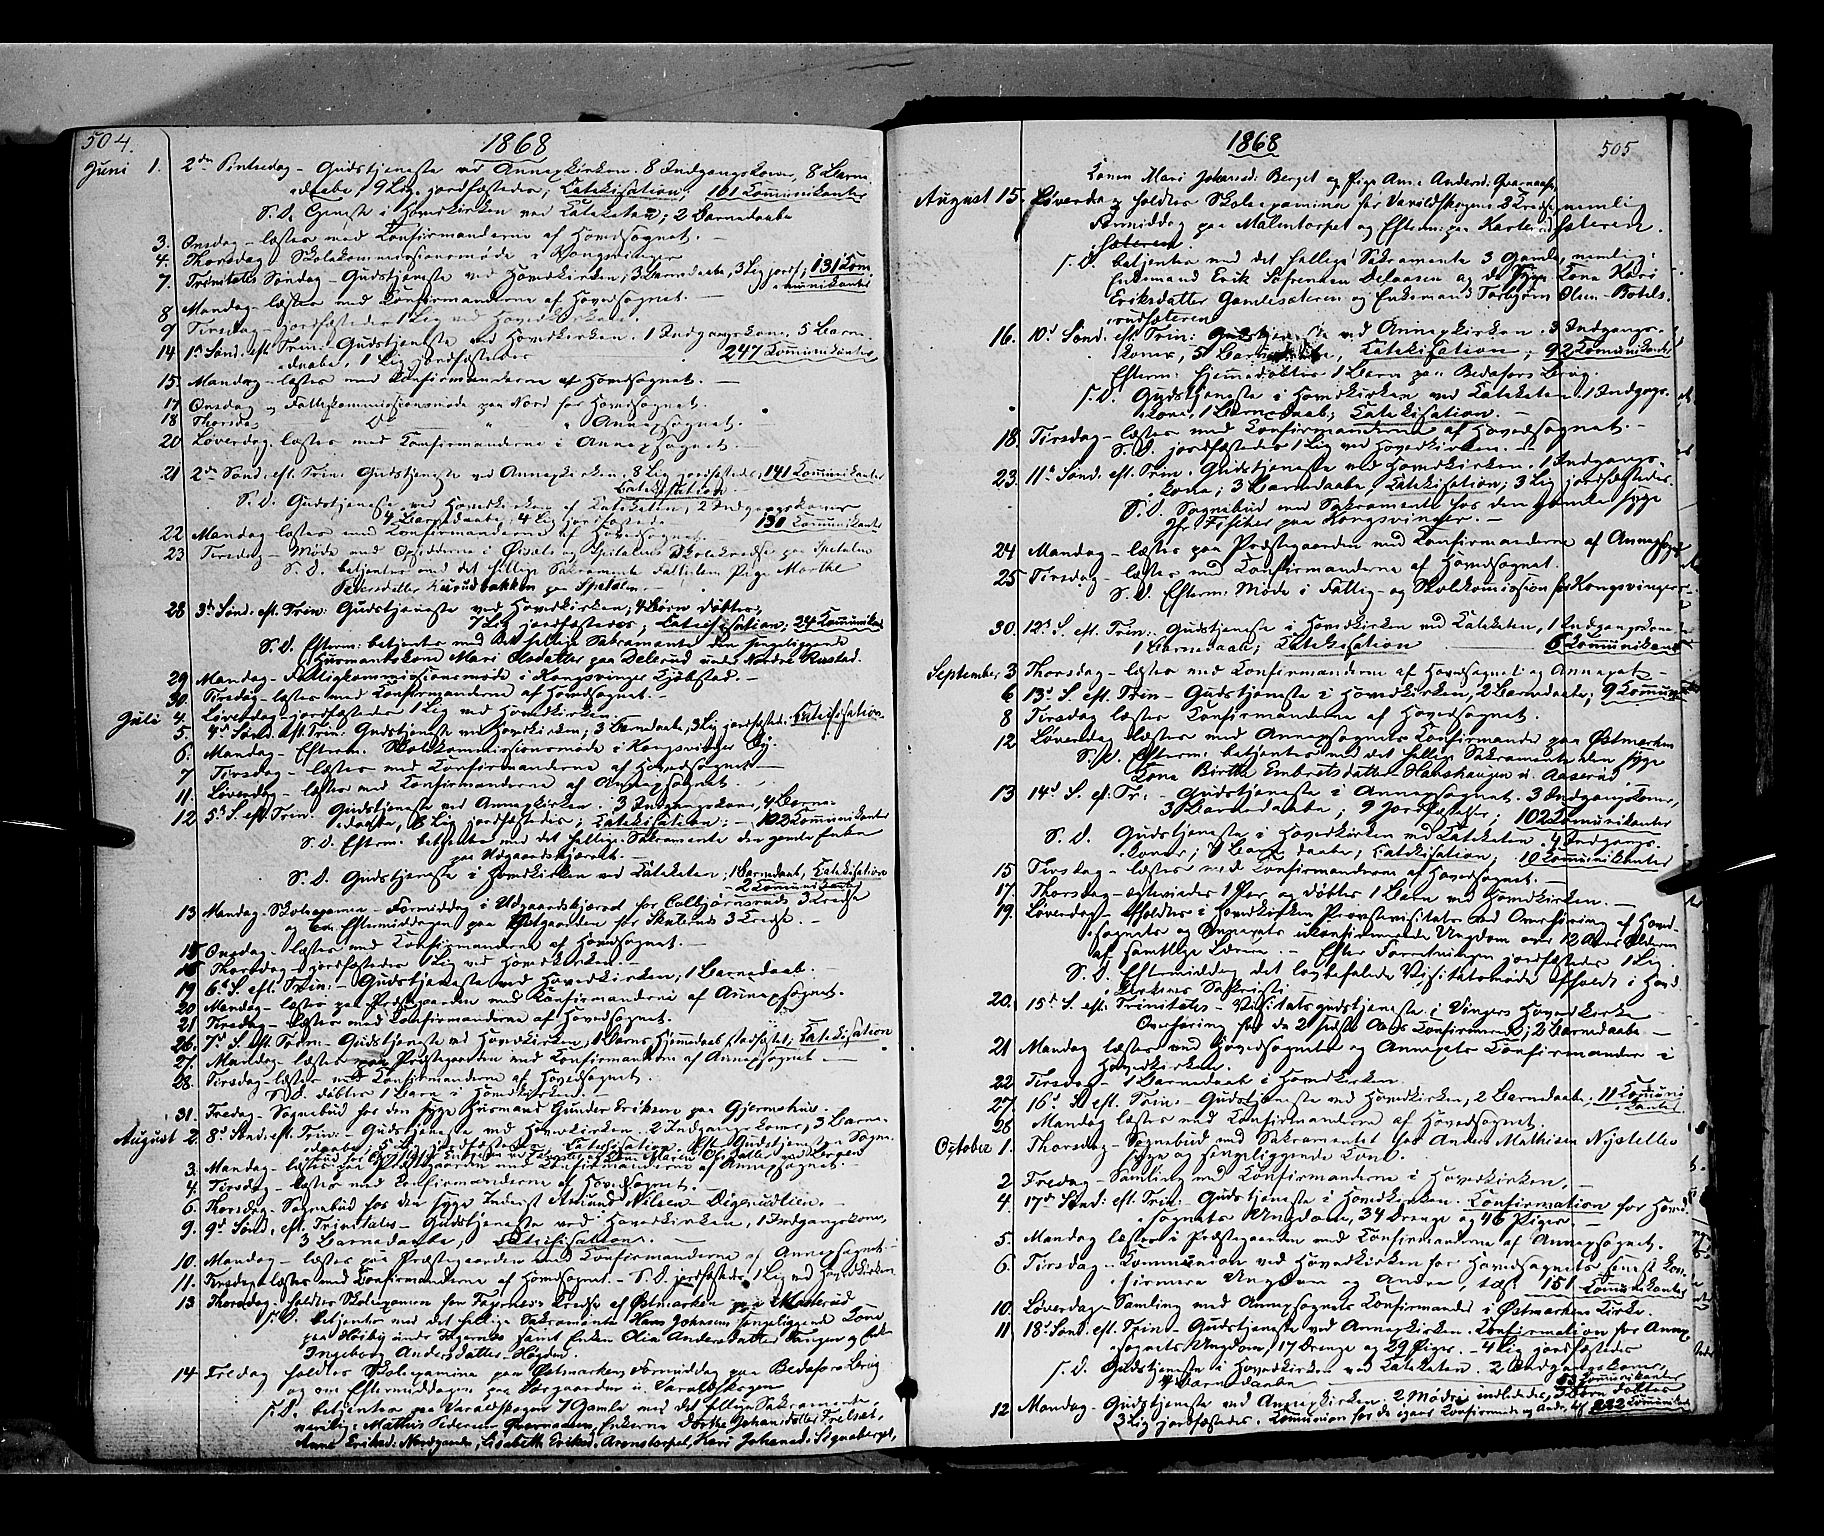 504.
1868
Juni 1. 2den Pintsedag – Gudstjeneste ved Annexkirken. 8 Indgangskoner, 8 Barne-
daabe, 9 Lig jordfæstede; Catekisation, 161 Communikanter
S. D. Tjeneste i Hovedkirken ved Kateketen; 2 Barnedaabe
3. Onsdag – læstes med Confirmanderne af Hovedsognet. –
4. Thorsdag – Skolekommissionsmøde i Kongsvinger
7. Trinitatis Søndag – Gudstjeneste ved Hovedkirken, 3 Barnedaabe, 3 Lig jordf., 131 Com-
munikanter
8 Mandag – læstes med Confirmanderne af Hovedsognet. –
9 Tirsdag – jordfæstedes 1 Lig ved Hovedkirken.
14 1ste Sønd. eft. Trin. Gudstjeneste ved Hovedkirken. 1 Indgangskone, 5 Barne-
daabe, 1 Lig jordfæstedes 247 Communikanter
15. Mandag – læstes med Confirmanderne af Hovedsognet. –
17 Onsdag – Fattigkommissionsmøde paa Nord for Hovedsognet.
18 Thorsdag Do " " Annexsognet. –
20 Løverdag læstes med Confirmanderne i Annexsognet
21 2den Sønd. eft. Trin. Gudstjeneste ved Annexkirken. 8 Lig jordfæstedes, 141 Communikanter
Catekisation
S. D. Gudstjeneste ved Hovedkirken af Kateketen, 2 Indgangskoner
4 Barnedaabe, 4 Lig jordfæstede 130 Communikanter
22 Mandag læstes med Confirmanderne af Hovedsognet. –
23 Tirsdag – Møde med Opsidderne i Skolekredse paa Spetalen
S. D. betjentes med det hellige Sakramente Fattiglem Pige Marthe
Pedersdatter paa Spetalen. –
28 3die Sønd. eft. Trin: Gudstjeneste ved Hovedkirken; 4 Børn døbtes,
7 Lig jordfæstedes; Catekisation; 24 Communikant
S. D. Efterm: betjentes med det hellige Sakramente den sengeliggende
Huusmandskone Mari Olsdatter paa Delerud under Nordre Rustad.
29 Mandag – Fattigkommissionsmøde i Kongsvinger Kjøbstad. –
30. Tirsdag – læstes med Confirmanderne af Hovedsognet. –
Juli 4. Løverdag – jordfæstedes 1 Lig ved Hovedkirken.
5. 4de Sønd. eft. Trin. Gudstjeneste ved Hovedkirken; 3 Barnedaabe, 3 Lig jordfæstede. Catekisation
6. Mandag – Efterm: Skolekommissionsmøde i Kongsvinger By.
7 Tirsdag – læstes med Confirmanderne af Hovedsognet –
11. Løverdag – læstes med Confirmanderne af Annexsognet.
12 5te S. eft. Trin. Gudstjeneste ved Annexkirken. 3 Indgangskoner, 4 Barne-
daabe, 6 Lig jordfæstedes; Catekisation; – 102 Communikanter
S. D. Efterm: betjentes med det hellige Sakramente den gamle Enke
paa Udgaardskjærnet. –
S. D. Gudstjeneste i Hovedkirken ved Kateketen; 1 Barnedaab, Catekisation
2 Communikanter
13 Mandag – Skoleexamen – Formiddag i Udgaardskjærnet for Colbjørnsruds 3 Kredse
og om Eftermiddagen paa for Skuteruds 3 Kredse. –
15 Onsdag – læstes med Confirmanderne af Hovedsognet. –
16 Thorsdag – jordfæstedes 1 Lig ved Hovedkirken. –
19 6te S. eft. Trin: – Gudstjeneste ved Hovedkirken; 1 Barnedaab.
20 Mandag – læstes paa Præstegaarden med Confirmanderne af Annexsognet.
21 Tirsdag – læstes med Confirmanderne af Hovedsognet.
26. 7de S. eft. Trin – Gudstjeneste ved Hovedkirken, 1 Barns Hjemmedaab stadfæstet; Catekisation
27. Mandag – læstes paa Præstegaarden med Confirmanderne af Annexsognet –
28. Tirsdag – læstes med Confirmanderne af Hovedsognet.
S. D. døbtes 1 Barn i Hovedkirken. –
31. Fredag – Sognebud for den syge Huusmand Gunder Eriksen paa Gjermshus.
August 2. 8de Sønd. eft. Trin: – Gudstjeneste ved Hovedkirken. 2 Indgangskoner, 3 Barne-
daabe, 5 Lig jordfæstedes. Catekisation. Eft. Gudstjenesten Sogne-
3. Mandag – læstes paa Præstegaarden med Confirmanderne af Annexsognet. –
4. Tirsdag – læstes med Confirmanderne af Hovedsognet. –
6. Thorsdag – Sognebud for den syge Inderst Amund Nilsen – Digerudlien. –
9. 9de Sønd. eft. Trinitatis – Gudstjeneste ved Hovedkirken, 1 Indgangskone,
3 Barnedaabe; Catekisation. –
10. Mandag – læstes paa Præstegaarden med Confirmanderne af Annexsognet –
11. Tirsdag læstes med Confirmanderne af Hovedsognet. – S. D. jordfæstedes 1 Lig ved Hovedkirken
13 Thorsdag – holdtes Skoleexamen for Fagernes Kreds af Østmarken paa Masterud
S. D. betjentes med det hellige Sakramente Hans Johnsens sengeliggende Kone
paa Heiby under Fagernes samt Enken Olia Andersdatter og Enke
Ingeborg Andersdatter – Høgden.
14 Fredag holdtes Skoleexamina paa Østmarkens Formiddag paa Bedafors Brug
og om Eftermiddagen paa i Varaldskogen
S. D. betjentes paa Varaldskogen 7 Gamle med det hellige Sakramente,
nemlig: Mathis Pedersen Enkerne Dorthe Johansdatter
Anne Eriksd. Lisabeth Eriksd. Aronstorpet, Kari Johansd: Signaberget,
1868
505
Konen Mari Johansd: Berget og Pige Anne Andersd: Qvarnaasen
August 15. Løverdag holdtes Skoleexamina for Varaldskogens 2 Kredse nemlig
Formiddag paa Malentorpet og Efterm: paa sæterede.
sæteren.
S. D. betjentes med det hellige Sakramente 3 Gamle, nemlig:
Enkemand Erik Søfrensen og d. syge Kone Kari
Eriksdatter Gamlesæteren og Enkemand Torbjørn Olsen – Botels-
rudsæteren
16. 10de Sønd. eft. Trin: Gudstjeneste ved Annexkirken. 3 Indgangs-
koner, 5 Barnedaabe, Catekisation; 92 Communikanter
Efterm: hjemmedøbtes 1 Barn paa Bedafors Brug.
S. D. Gudstjeneste i Hovedkirken ved Kateketen. 1 Indgangs-
kone, 1 Barnedaab; Catekisation. –
18. Tirsdag – læstes med Confirmanderne af Hovedsognet. –
S. D. jordfæstedes 1 Lig ved Hovedkirken. –
23. 11te Sønd. eft. Trin. Gudstjeneste ved Hovedkirken. 1 Indgangs-
kone; 3 Barnedaabe, Catekisation; 3 Lig jordfæstedes.
S. D. Sognebud med Sakramente hos den gamle syge
Hr. Fischer paa Kongsvinger. –
24 Mandag – læstes paa Præstegaarden med Confirmanderne af Annexsognet
25 Tirsdag – læstes med Confirmanderne af Hovedsognet.
S. D. Efterm: Møde i Fattig- og Skolekommission for Kongsvinger.
30. 12te S. eft. Trin: Gudstjeneste i Hovedkirken ved Kateketen, 1 Indgangskone
1 Barnedaab; Catekisation 6 Communikanter
September 3 Thorsdag – læstes med Confirmanderne af Hovedsognet og Annexet –
6 13de S. eft. Trin – Gudstjeneste i Hovedkirken, 2 Barnedaabe; 9 Communik
8 Tirsdag læstes Confirmanderne af Hovedsognet.
12 Løverdag læstes med Annexsognets Confirmander paa Østmarken
S. D. Efterm: betjentes med det hellige Sakramente den syge
Kone Birthe Embretsdatter Hanshaugen u. Aaserud
13 14de S. ef: Tr: – Gudstjeneste i Annexsognet. 3 Indgangskoner,
3 Barnedaabe; 9 Jordfæstelser; 102 Communikanter
S. D. Gudstjeneste i Hovedkirken ved Kateketen. 4 Indgangs-
koner; Barnedaabe; Catekisation; 10 Communikanter
15 Tirsdag – læstes med Confirmanderne af Hovedsognet. –
17. Thorsdag – copuleredes 1 Par og døbtes 1 Barn ved Hovedkirken. –
19. Løverdag – Afholdtes i Hovedkirken Provstevisitats ved Overhøring af Hoved-
sognets og Annexets ukonfirmerede Ungdom over 12 Aars Alderen
af samtlige Lærere. – Efter Forretningen jordfæstedes 1 Lig. –
S. D. Eftermiddag det lovbefalede Visitatsmøde afholdt i Hoved-
kirkens Sakristi
20. 15de S. eft. Trinitatis – Visitatsgudstjeneste i Vingers Hovedkirke
Overhøring for de 2 sidste Aars Confirmerede; 2 Barnedaabe –
21 Mandag læstes med Hovedsognets og Annexets Confirmander i
Hovedkirken.
22 Tirsdag – 1 Barnedaab i Hovedkirken.
27 16de S. eft. Trin – Gudstjeneste ved Hovedkirken, 2 Barnedaabe, 11 Communi-
kanter
28 Mandag læstes med Confirmanderne af Hovedsognet.
October 1. Thorsdag – Sognebud med Sakramentet for Anders Mathisen Nystelles
syge og sengeliggende Kone.
2 Fredag – Samling med Confirmanderne i Hovedkirken. –
4. 17de Sønd: eft. Trin: Gudstjeneste i Hovedkirken. Confirmation for Hoved-
sognets Ungdom, 34 Drenge og 46 Piger –
5. Mandag læstes i Præstegaarden med Confirmanderne af Annexsognet.
6. Tirsdag – Communion ved Hovedkirken for Hovedsognets senest kon-
firmerede Ungdom og Andre, tils. 151 Communikanter
10. Løverdag – Samling med Annexsognets Confirmander i Østmarkens Kirke.
11 18de Sønd. eft. Trin – Gudstjeneste ved Annexkirken. Confirmation for Annex-
sognets Ungdom, 17 Drenge og 29 Piger. – 4 Lig jordfæstedes
S. D. Gudstjeneste i Hovedkirken ved Kateketen. 2 Indgangskoner,
4 Barnedaabe 53 Communikanter
12 Mandag – Gudstjeneste ved Annexkirken. 2 Mødre indlededes, 3 Børn døbtes
3 Lig jordfæstedes. Communion for de igaar Confirmerede og Andre, tils 222 Communikant